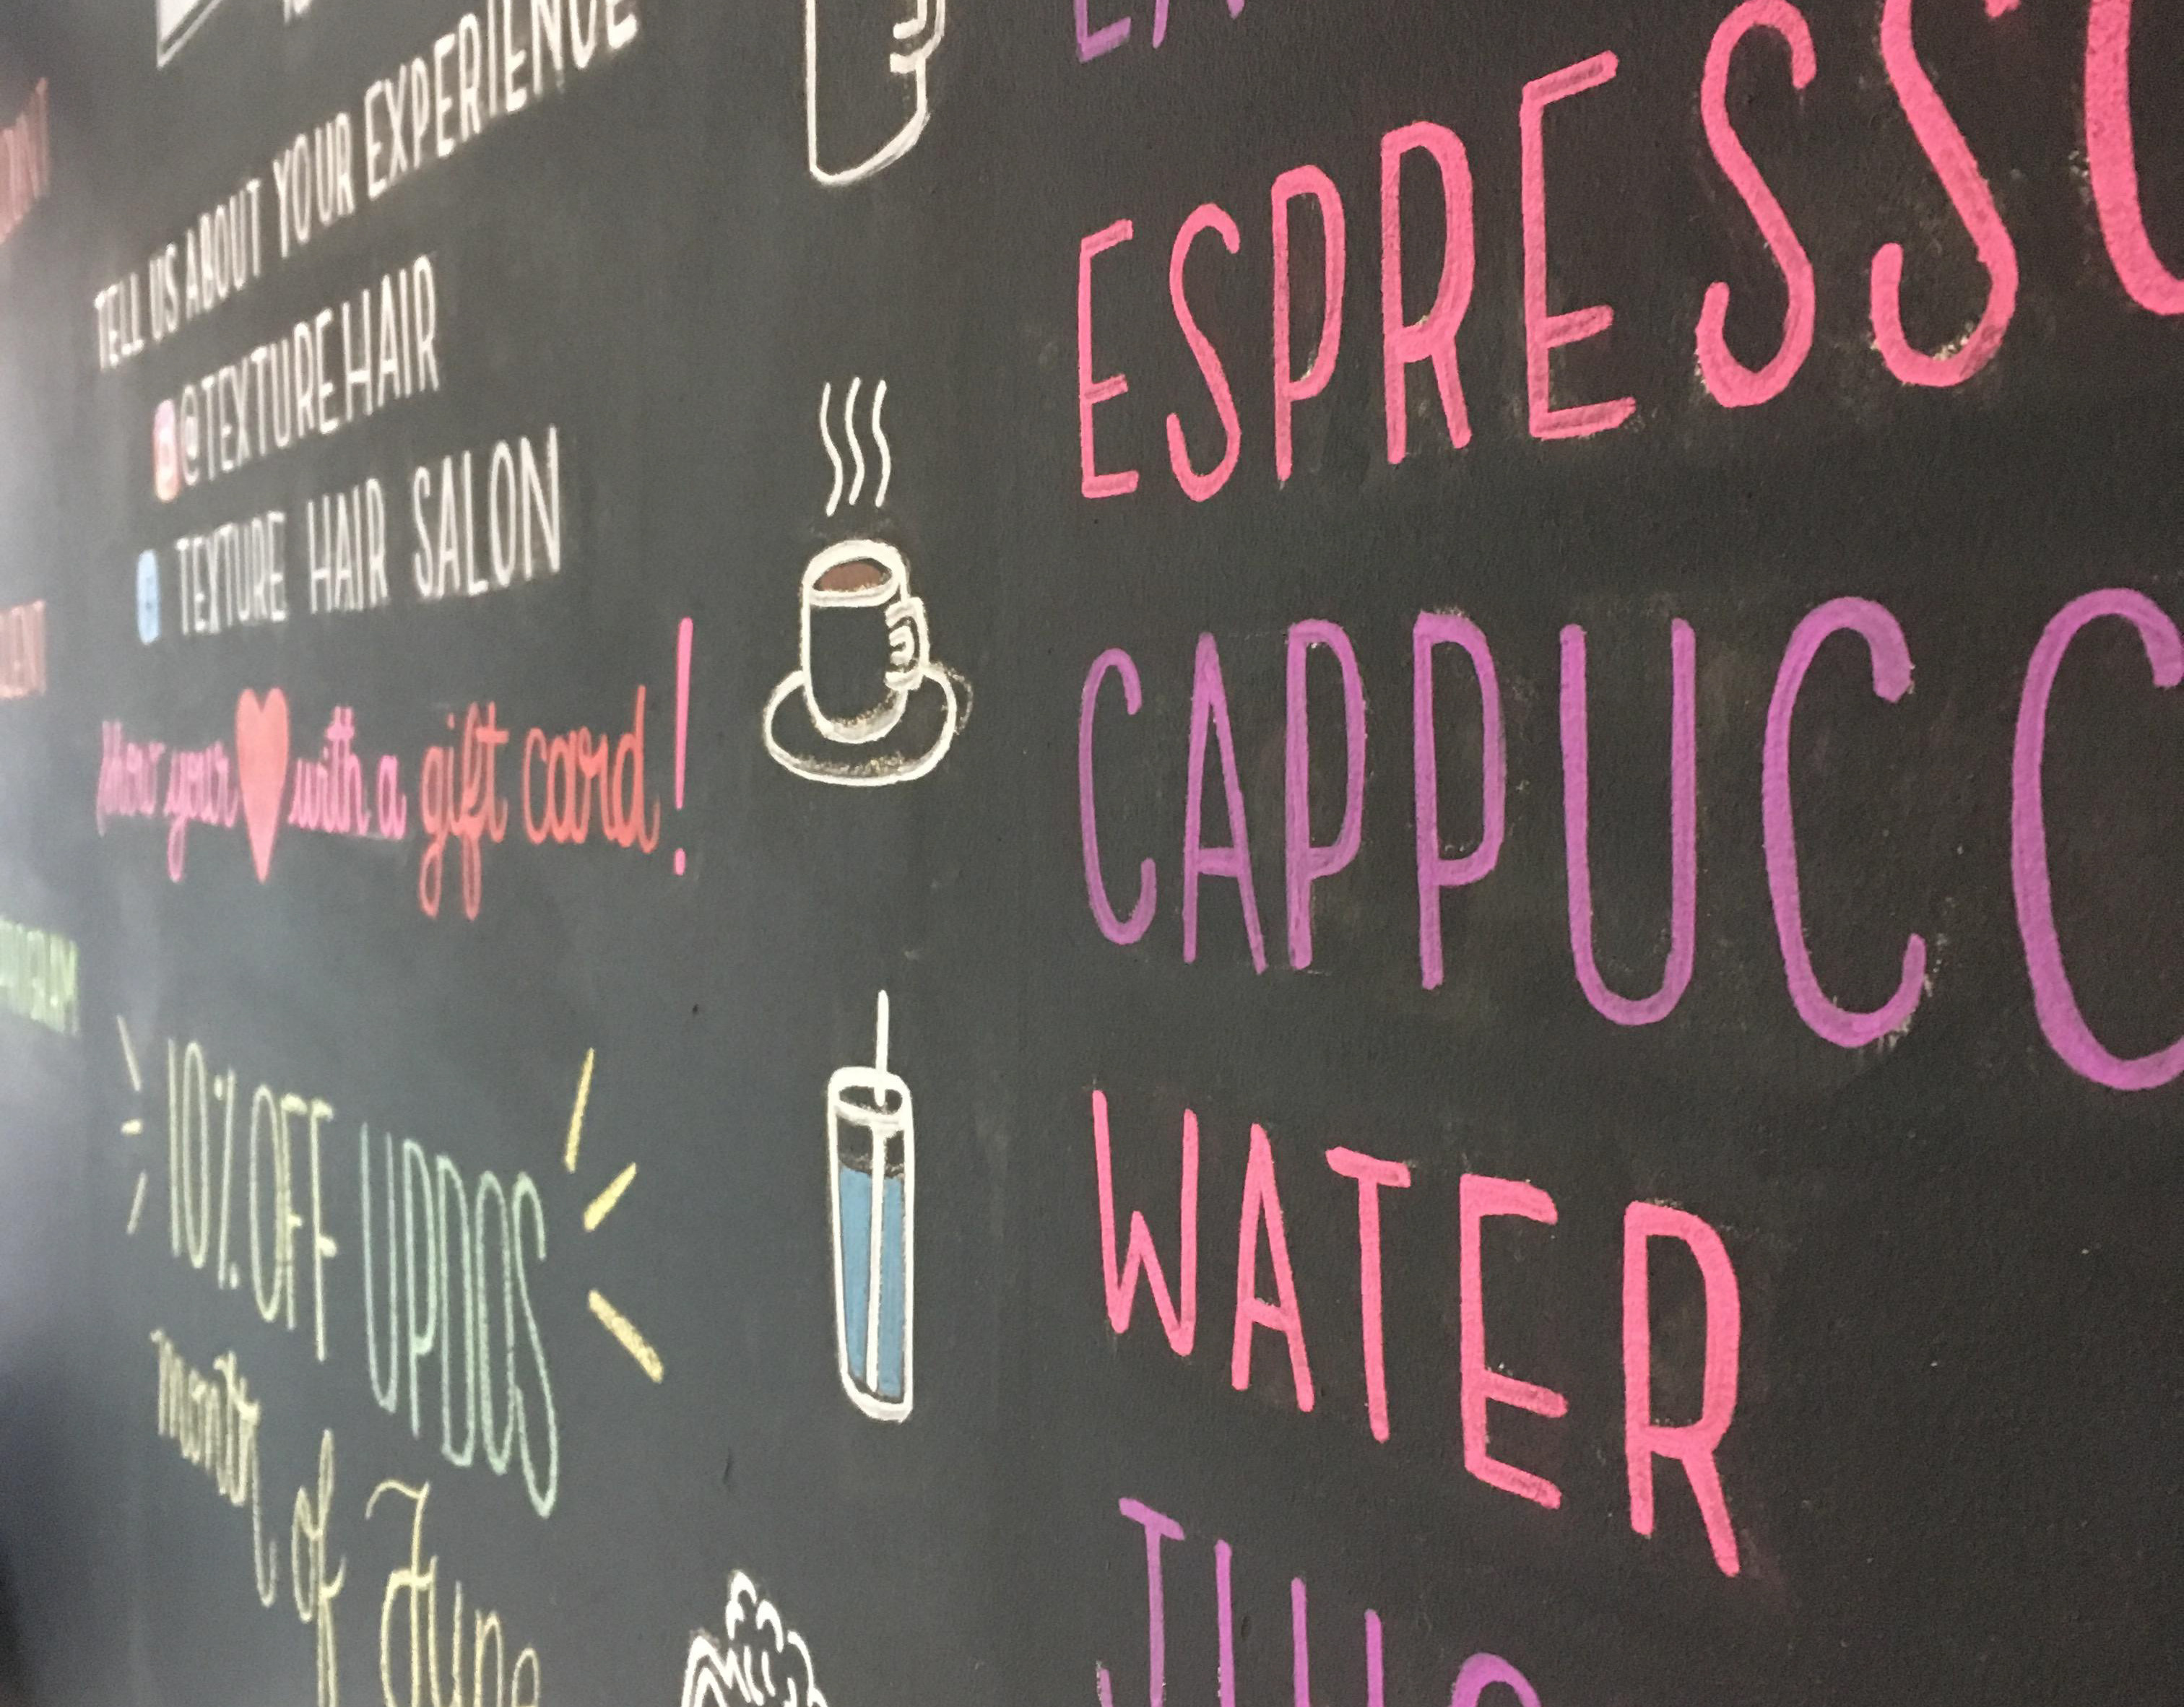 TELL US ABOUT YOUR EXPERIENCE
@TEXTUREHAIR
TEXTURE HAIR SALON
Show your with a gift card!
10% OFF UPDOS
month of June
ESPRESSO
CAPPUCC
WATER